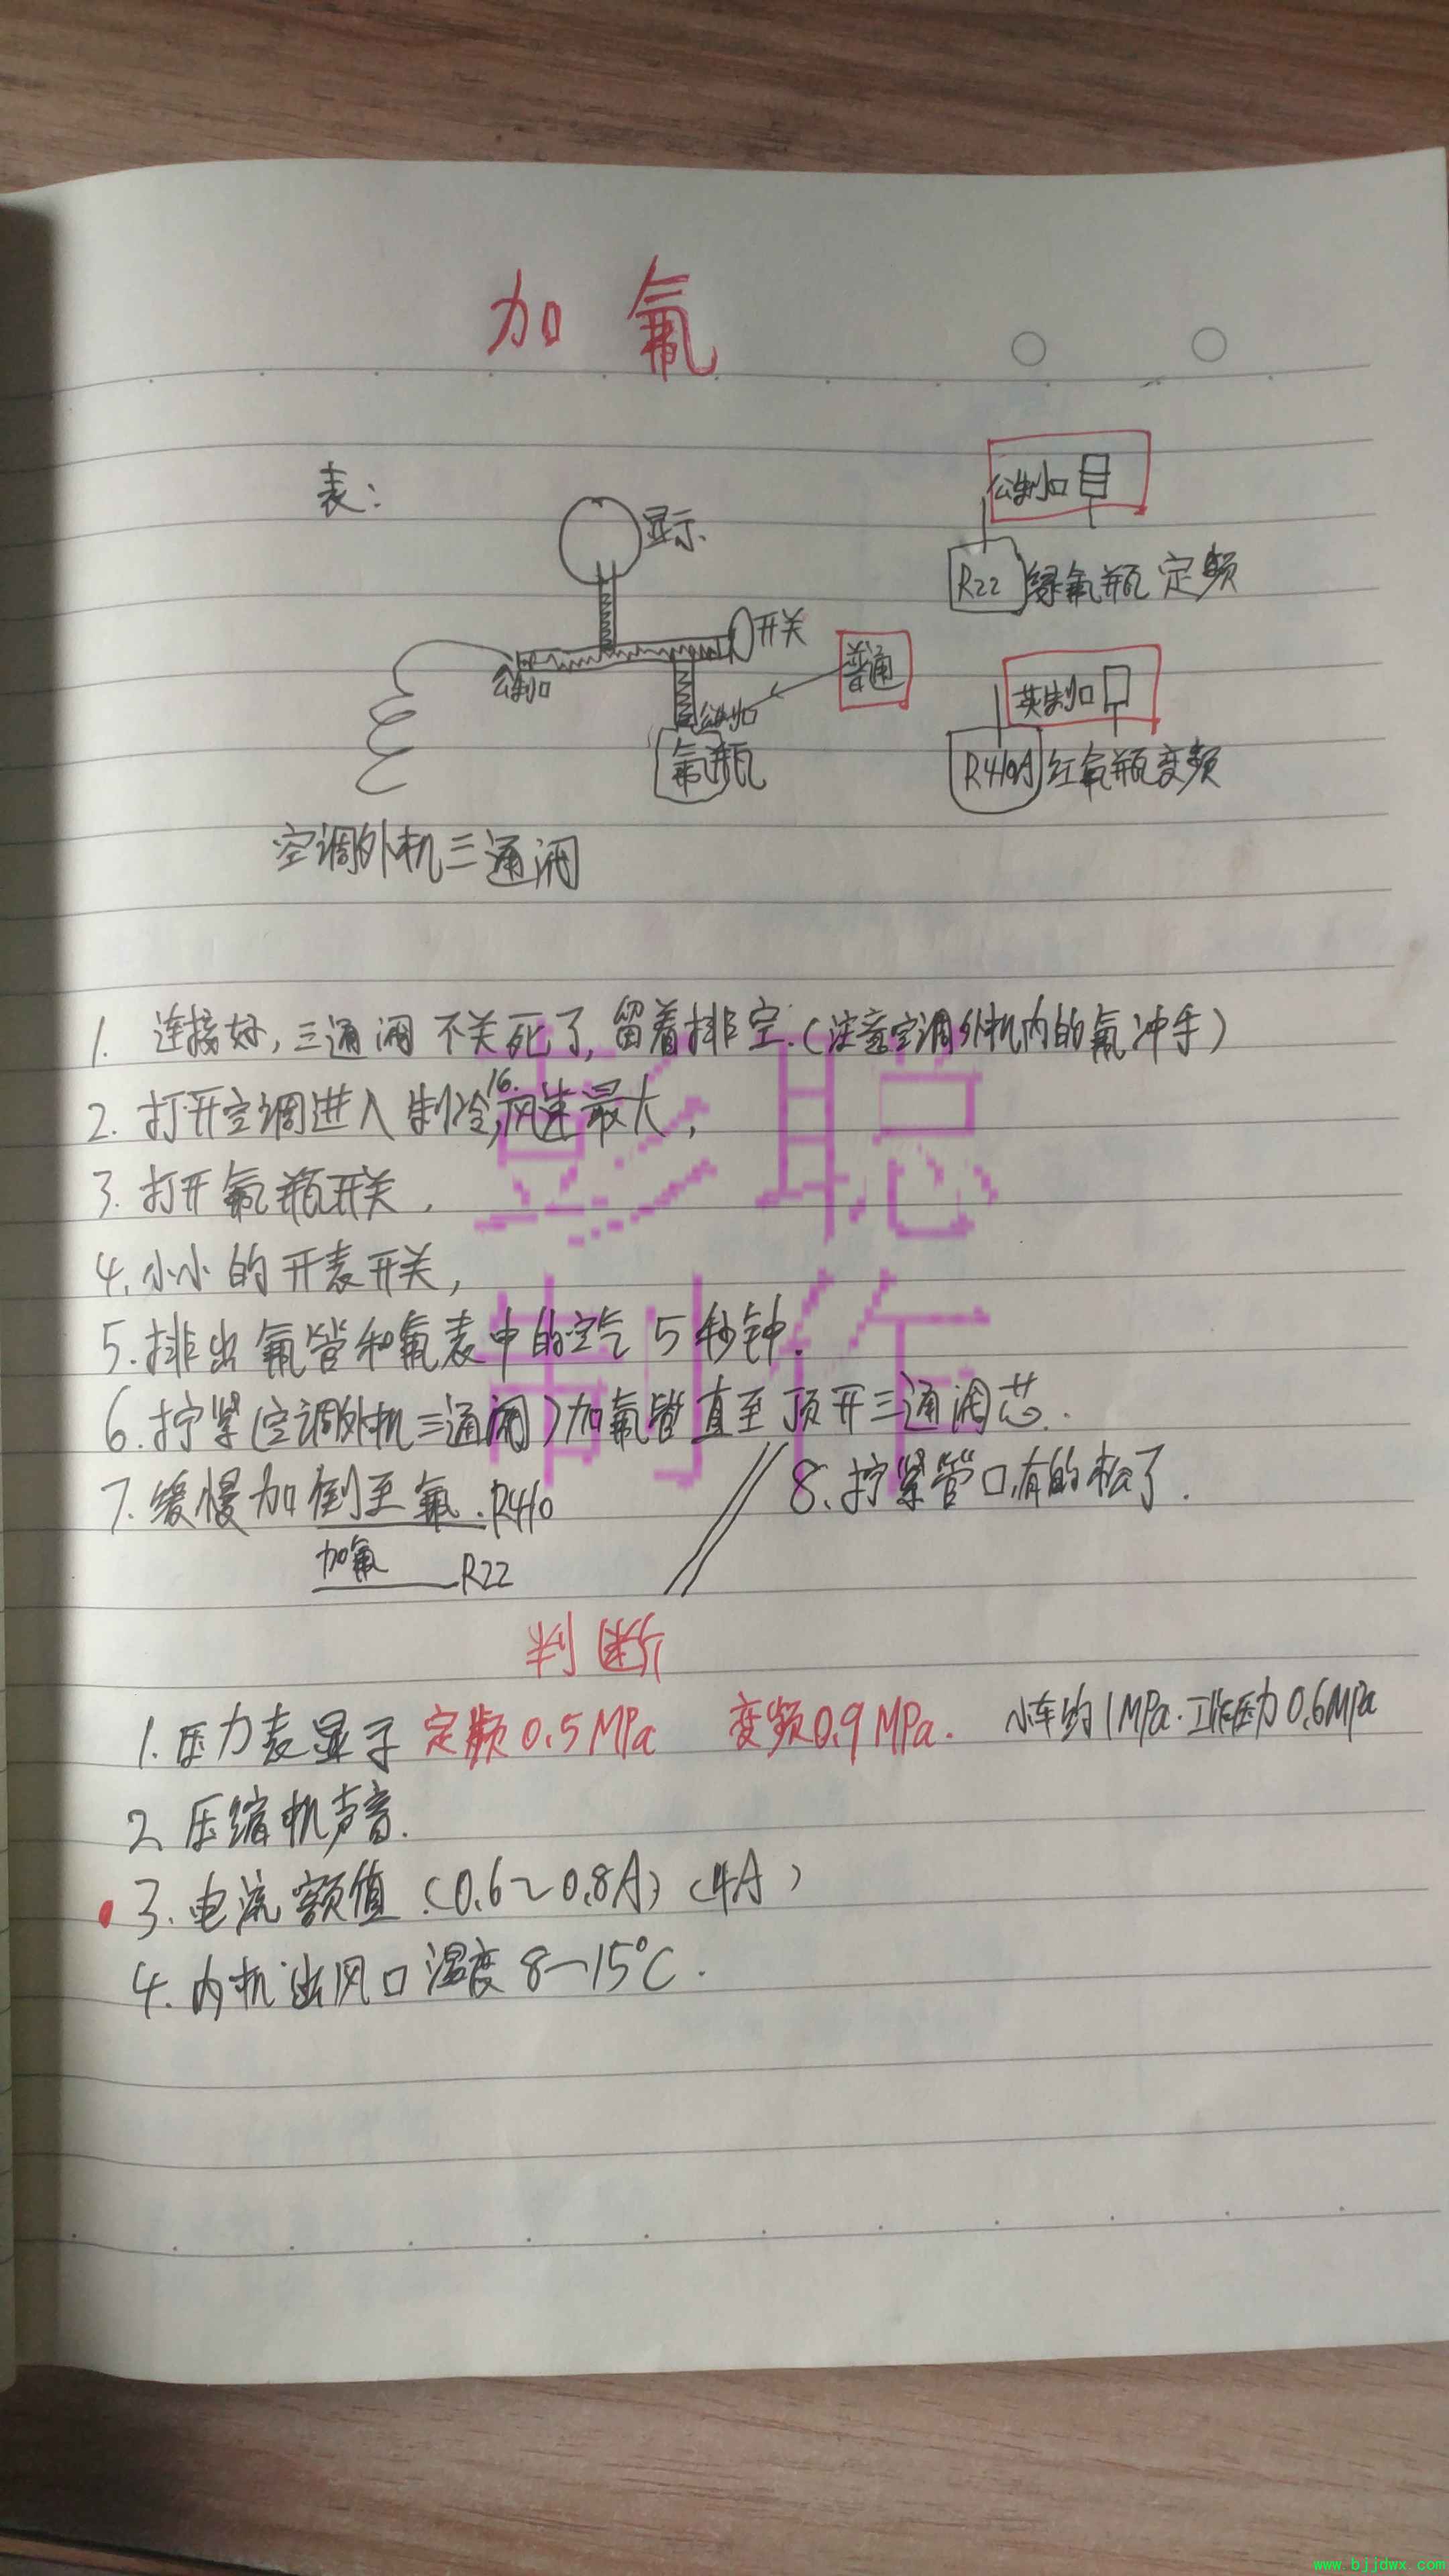 加氟
表：
显示
开关
公制口
公制口
普通
氟瓶
空调外机三通阀
公制口
R22 绿氟瓶 定频
英制口
R410A 红氟瓶变频
1. 连接好, 三通阀 不关死了, 留着排空.(注意空调外机内的氟冲手)
2. 打开空调进入制冷,16.风速最大,
3. 打开氟瓶开关,
4. 小小的开表开关,
5. 排出氟管和氟表中的空气 5秒钟.
6. 拧紧(空调外机三通阀)加氟管直至顶开三通阀芯.
7. 缓慢加倒至氟.R410
加氟 R22
8. 拧紧管口,有的松了.
判断
1. 压力表显示 定频0.5MPa 变频0.9MPa. 小车约1MPa.工作压力0.6MPa
2、压缩机声音.
3. 电流额值(0.6~0.8A)(4A)
4. 内机出风口温度8—15℃.
彭聪
制作
www.bjjdwx.com